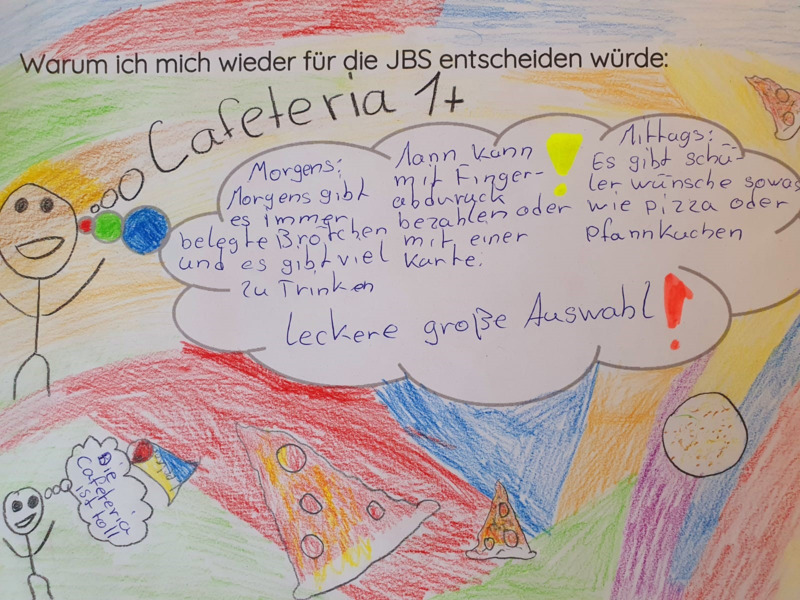 Warum ich mich wieder für die JBS entscheiden würde:
Cafeteria 1+
Morgens:
Morgens gibt
es immer
belegte Brötchen
und es gibt viel
zu Trinken
Mann kann
mit Finger-
abdruck
bezahlen oder
mit einer
Karte.
!
Mittags:
Es gibt schü-
ler wünsche sowas
wie pizza oder
pfannkuchen
Leckere große Auswahl !
Die
Cafeteria
ist toll